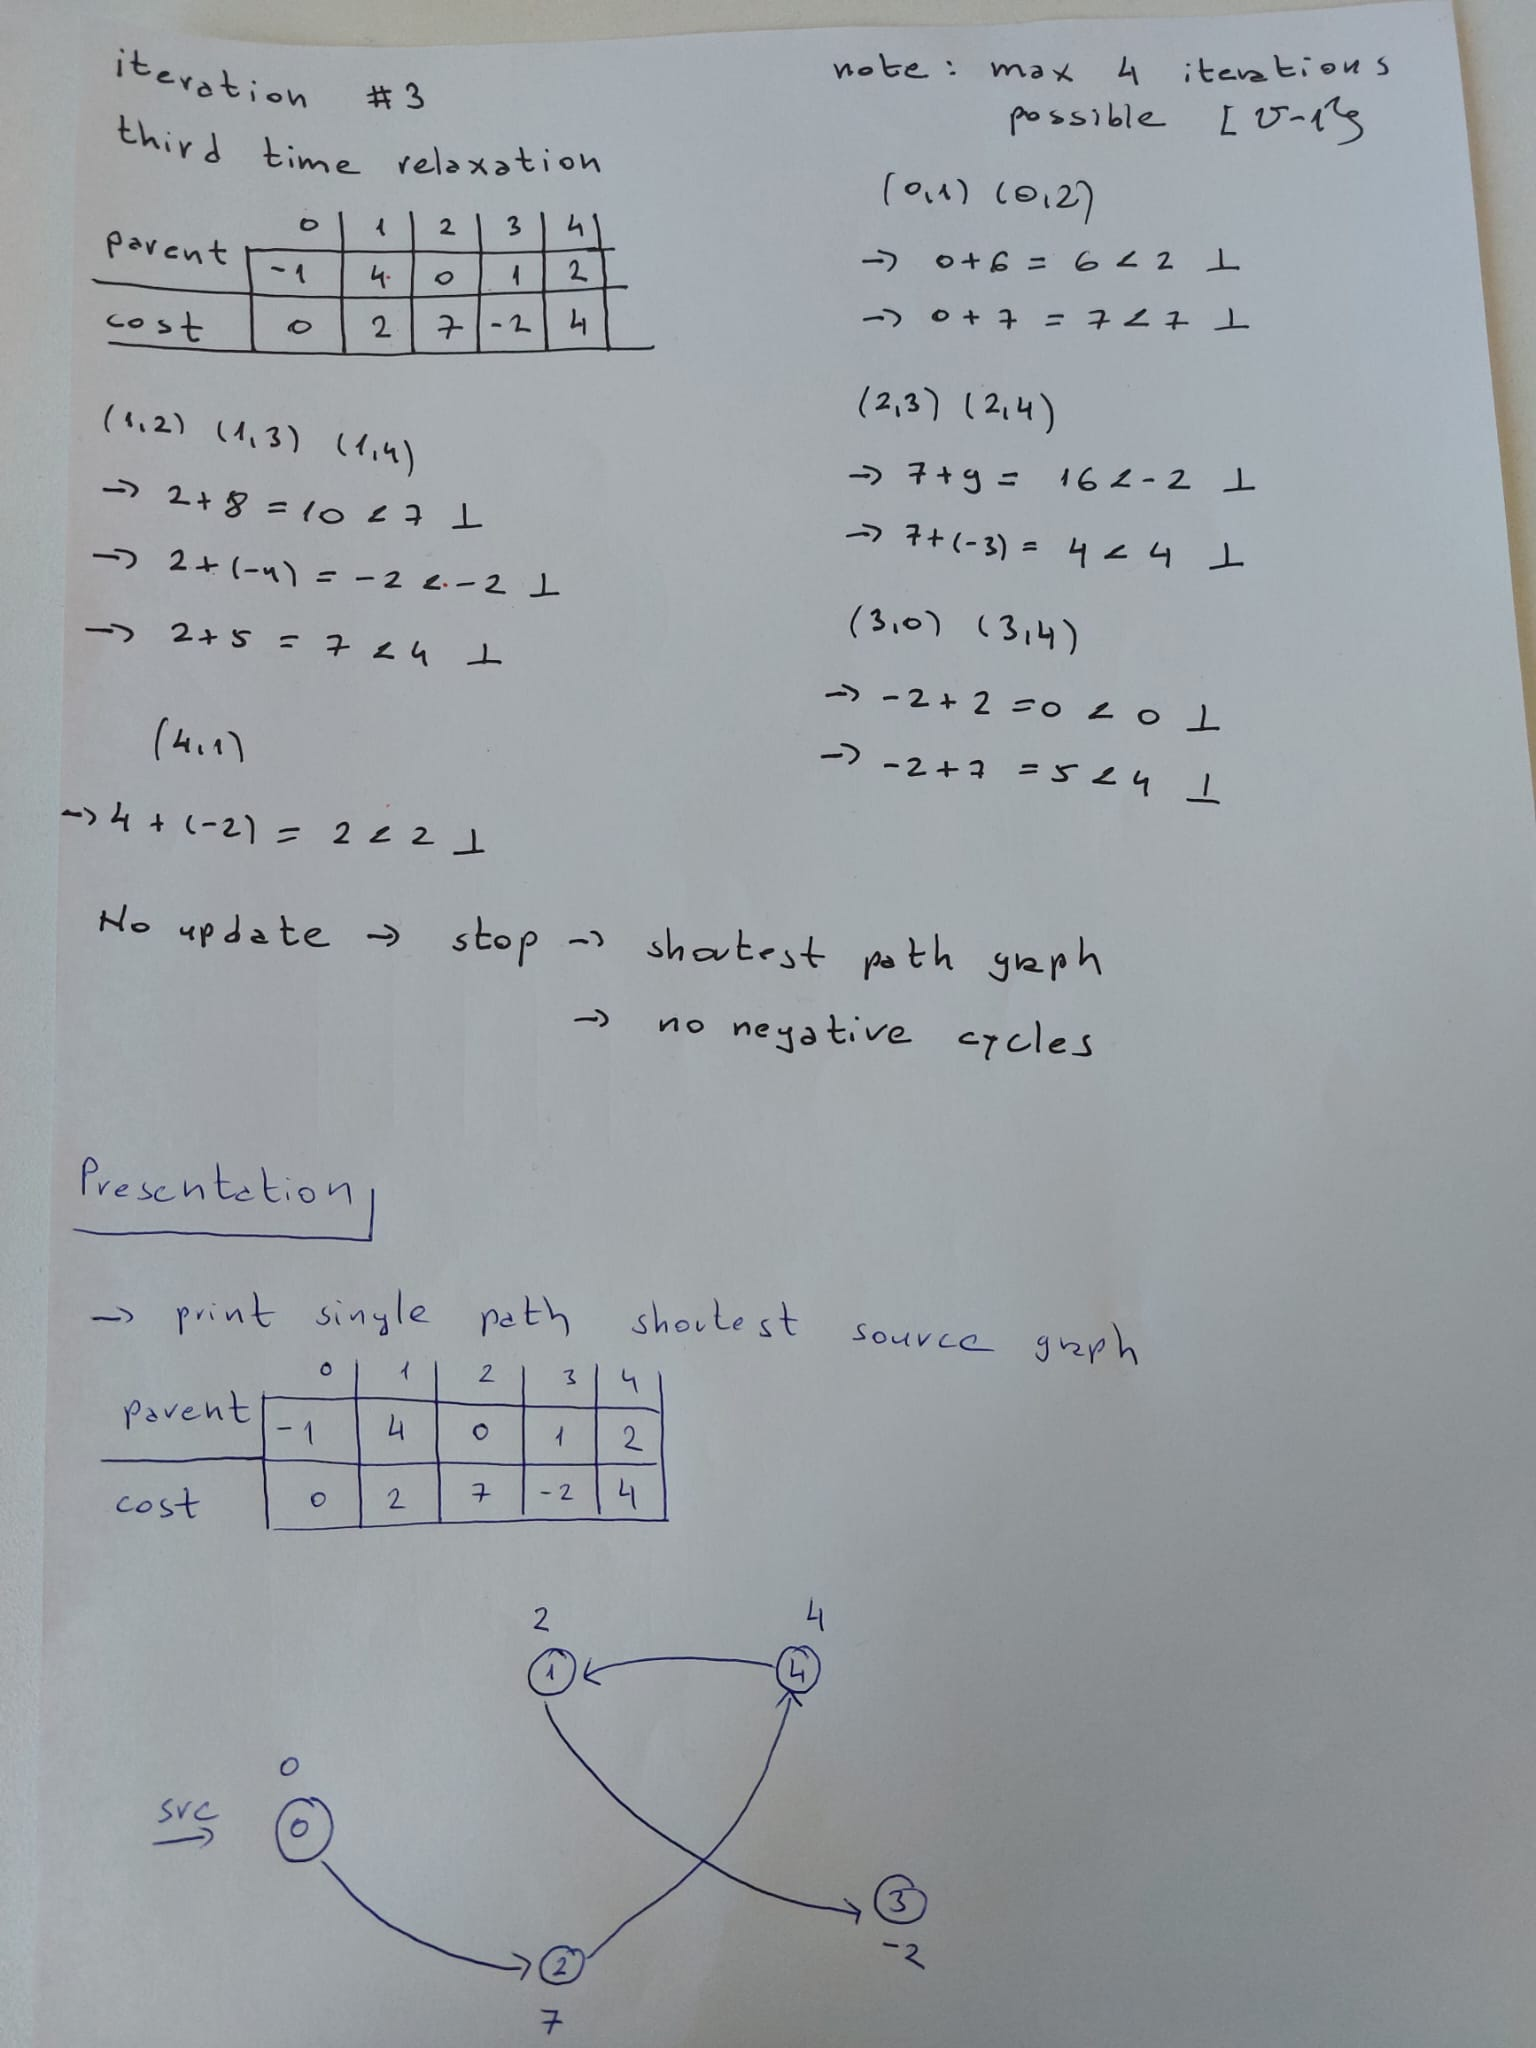 iteration #3
third time relaxation
0 1 2 3 4
parent -1 4 0 1 2
cost 0 2 7 -2 4
note: max 4 iterations
possible
(0,1) (0,2)
→ 0+6 = 6 < 2 ⊥
→ 0+7 = 7 < 7 ⊥
(1,2) (1,3) (1,4)
→ 2+8 = 10 < 7 ⊥
→ 2+(-4) = -2 < -2 ⊥
→ 2+5 = 7 < 4 ⊥
(2,3) (2,4)
→ 7+9 = 16 < -2 ⊥
→ 7+(-3) = 4 < 4 ⊥
(3,0) (3,4)
→ -2+2 = 0 < 0 ⊥
→ -2+7 = 5 < 4 ⊥
(4,1)
→ 4+(-2) = 2 < 2 ⊥
No update → stop → shortest path graph
→ no negative cycles
Presentation
→ print single path shortest source graph
0 1 2 3 4
parent -1 4 0 1 2
cost 0 2 7 -2 4
2 4
1 4
0
src 0
3
-2
2
7